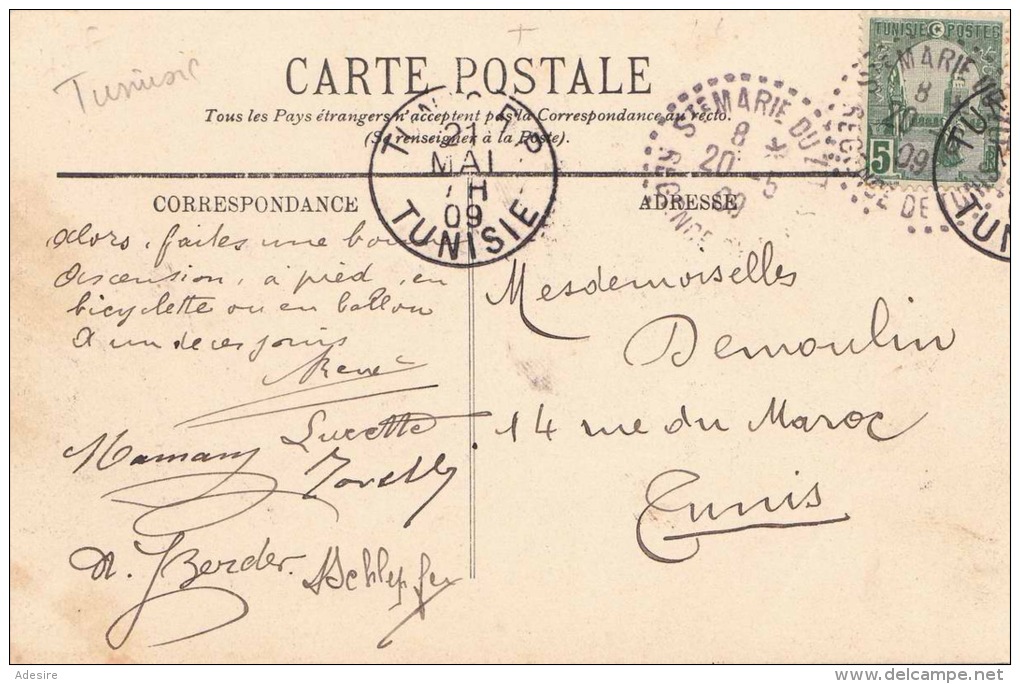 Tunisie
CARTE POSTALE
Tous les Pays étrangers n'acceptent pas la Correspondance au recto.
(Se renseigner à la Poste).
CORRESPONDANCE
ADRESSE
TUNISIE POSTES
5
STE MARIE DU
8
20 5
09
RÉGENCE
STE MARIE DU
8
20
09
RÉGENCE DE
21
MAI
09
TUNISIE
TU
TUN
Alors, faites une bonne
Ascension, à pied, en
bicyclette ou en ballon
A un de ces jours
René
Maman
Lucette
Berder
Mesdemoiselles
Demoulin
14 rue du Maroc
Tunis
Adesire
www.delcampe.net